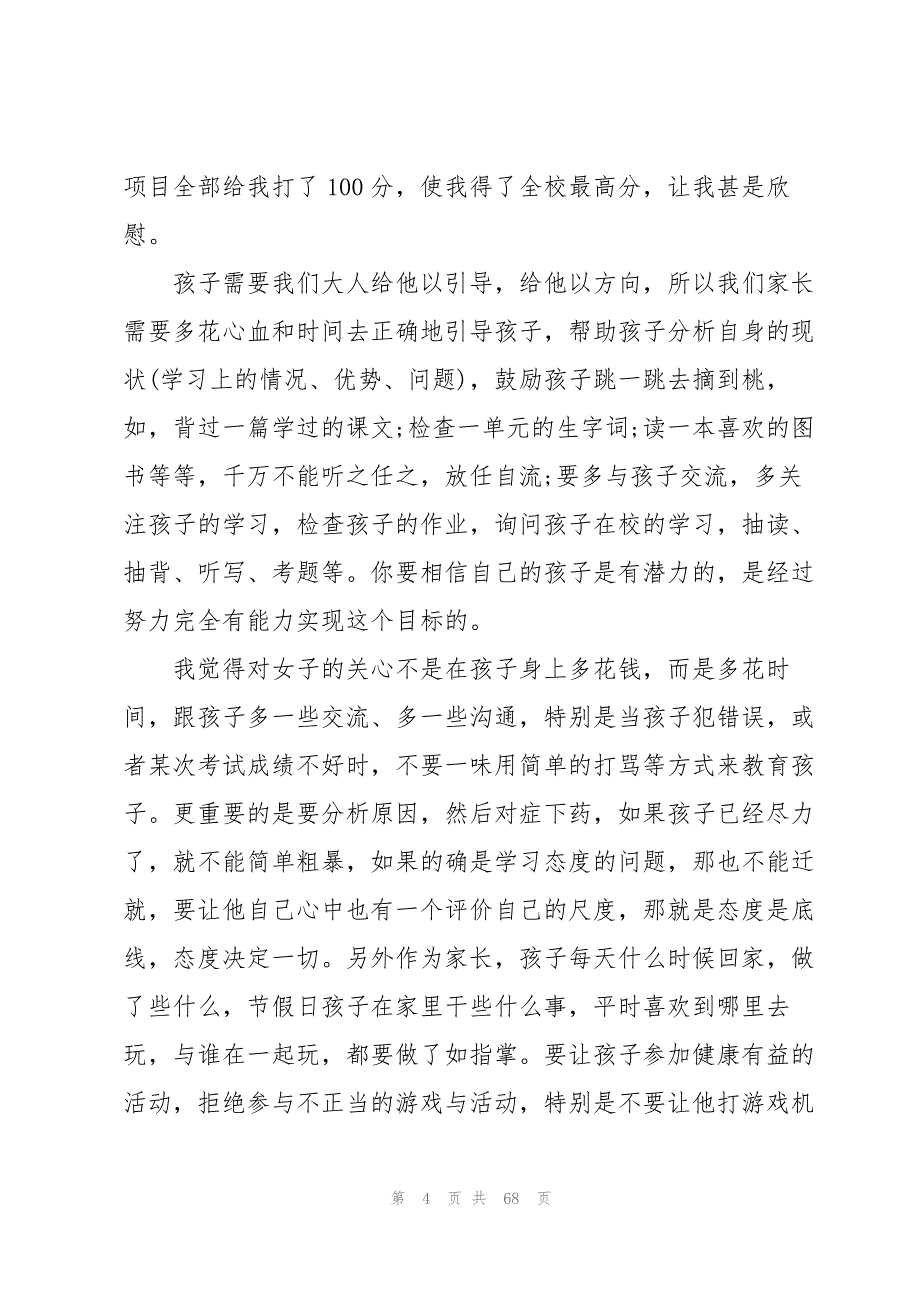 项目全部给我打了 100 分，使我得了全校最高分，让我甚是欣
慰。
孩子需要我们大人给他以引导，给他以方向，所以我们家长
需要多花心血和时间去正确地引导孩子，帮助孩子分析自身的现
状(学习上的情况、优势、问题)，鼓励孩子跳一跳去摘到桃，
如，背过一篇学过的课文;检查一单元的生字词;读一本喜欢的图
书等等，千万不能听之任之，放任自流;要多与孩子交流，多关
注孩子的学习，检查孩子的作业，询问孩子在校的学习，抽读、
抽背、听写、考题等。你要相信自己的孩子是有潜力的，是经过
努力完全有能力实现这个目标的。
我觉得对女子的关心不是在孩子身上多花钱，而是多花时
间，跟孩子多一些交流、多一些沟通，特别是当孩子犯错误，或
者某次考试成绩不好时，不要一味用简单的打骂等方式来教育孩
子。更重要的是要分析原因，然后对症下药，如果孩子已经尽力
了，就不能简单粗暴，如果的确是学习态度的问题，那也不能迁
就，要让他自己心中也有一个评价自己的尺度，那就是态度是底
线，态度决定一切。另外作为家长，孩子每天什么时候回家，做
了些什么，节假日孩子在家里干些什么事，平时喜欢到哪里去
玩，与谁在一起玩，都要做了如指掌。要让孩子参加健康有益的
活动，拒绝参与不正当的游戏与活动，特别是不要让他打游戏机
第 4 页 共 68 页